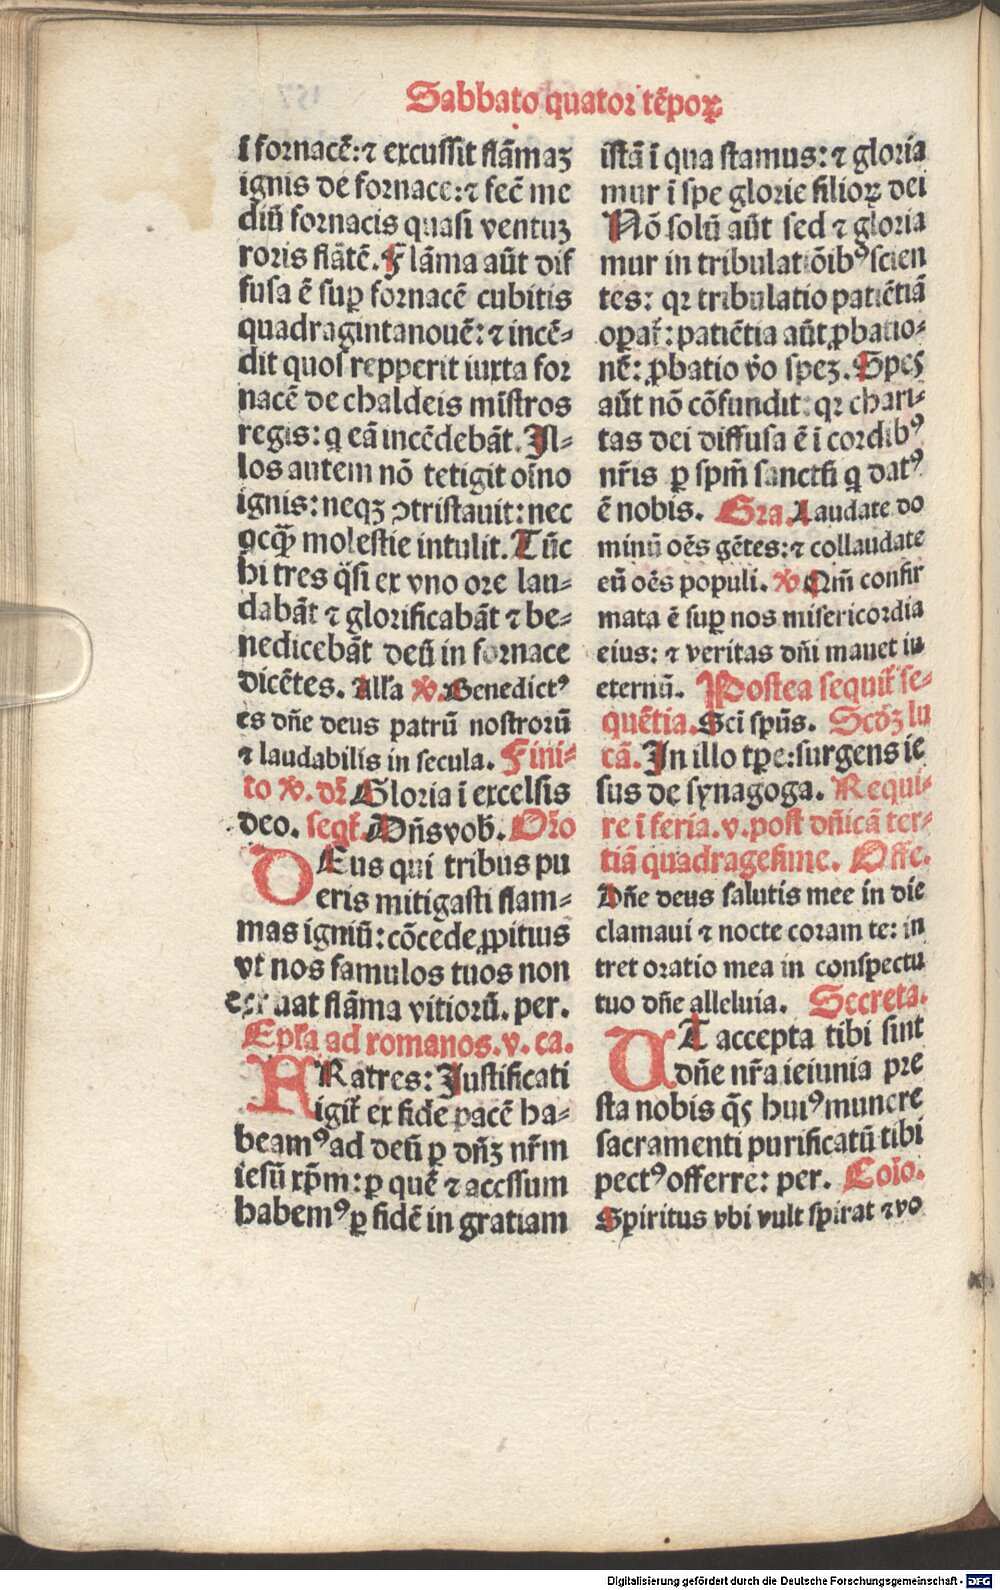 Sabbato quatuor tēpoꝝ
ī fornacē: ⁊ excussit flāmaꝫ
ignis de fornace: ⁊ fec̄ me
diū fornacis quasi ventuꝫ
roris flātē. Flāma aūt dif
fusa ē suꝑ fornacē cubitis
quadragintanouē: ⁊ incē-
dit quos repperit iuxta for
nacē de chaldeis mīstros
regis: q eā incēdebāt. Il-
los autem nō tetigit oīno
ignis: neqꝫ ꝯtristauit: nec
qcꝙ̄ molestie intulit. Tūc
hi tres q̄si ex vno ore lau-
dabāt ⁊ glorificabāt ⁊ be-
nedicebāt deū in fornace
dicētes. Alľa ℣. Benedictꝰ
es dn̄e deus patrū nostrorū
⁊ laudabilis in secula. Fini-
to ℣. dr̄ Gloria ī excelsis
deo. seqr̄. Dn̄s vob̄. Oro
DEus qui tribus pu
eris mitigasti flam-
mas igniū: cōcede ꝓpitius
vt nos famulos tuos non
exurat flāma vitiorū. per.
Epľa ad romanos. v. ca.
FRatres: Justificati
igit̄ ex fide pacē ha-
beamꝰ ad deū ꝑ dn̄ꝫ nr̄m
iesū xp̄m: ꝑ quē ⁊ accessum
habemꝰ ꝑ fidē in gratiam
istā ī qua stamus: ⁊ gloria
mur ī spe glorie filioꝝ dei
Nō solū aūt sed ⁊ gloria
mur in tribulatiōibꝰ scien
tes: qꝛ tribulatio patiētiā
oꝑat̄: patiētia aūt ꝓbatio-
nē: ꝓbatio v̄o speꝫ. Spes
aūt nō cōfundit: qꝛ chari-
tas dei diffusa ē ī cordibꝰ
nr̄is ꝑ spm̄ sanctū q datꝰ
ē nobis. Gra. Laudate do
minū oēs gētes: ⁊ collaudate
eū oēs populi. ℣. Qm̄ confir
mata ē suꝑ nos misericordia
eius: ⁊ veritas dn̄i manet in
eternū. Postea sequit̄ se-
quētia. Sci spūs. Scďꝫ lu
cā. In illo tꝑe: surgens ie
sus de synagoga. Requi-
re ī feria. v. post dn̄icā ter-
tiā quadragesime. Offe.
Dn̄e deus salutis mee in die
clamaui ⁊ nocte coram te: in
tret oratio mea in conspectu
tuo dn̄e alleluia. Secreta.
UT accepta tibi sint
dn̄e nr̄a ieiunia pre
sta nobis q̄s huiꝰ munere
sacramenti purificatū tibi
pectꝰ offerre: per. Cōio.
Spiritus vbi vult spirat ⁊ vo
Digitalisierung gefördert durch die Deutsche Forschungsgemeinschaft - DFG